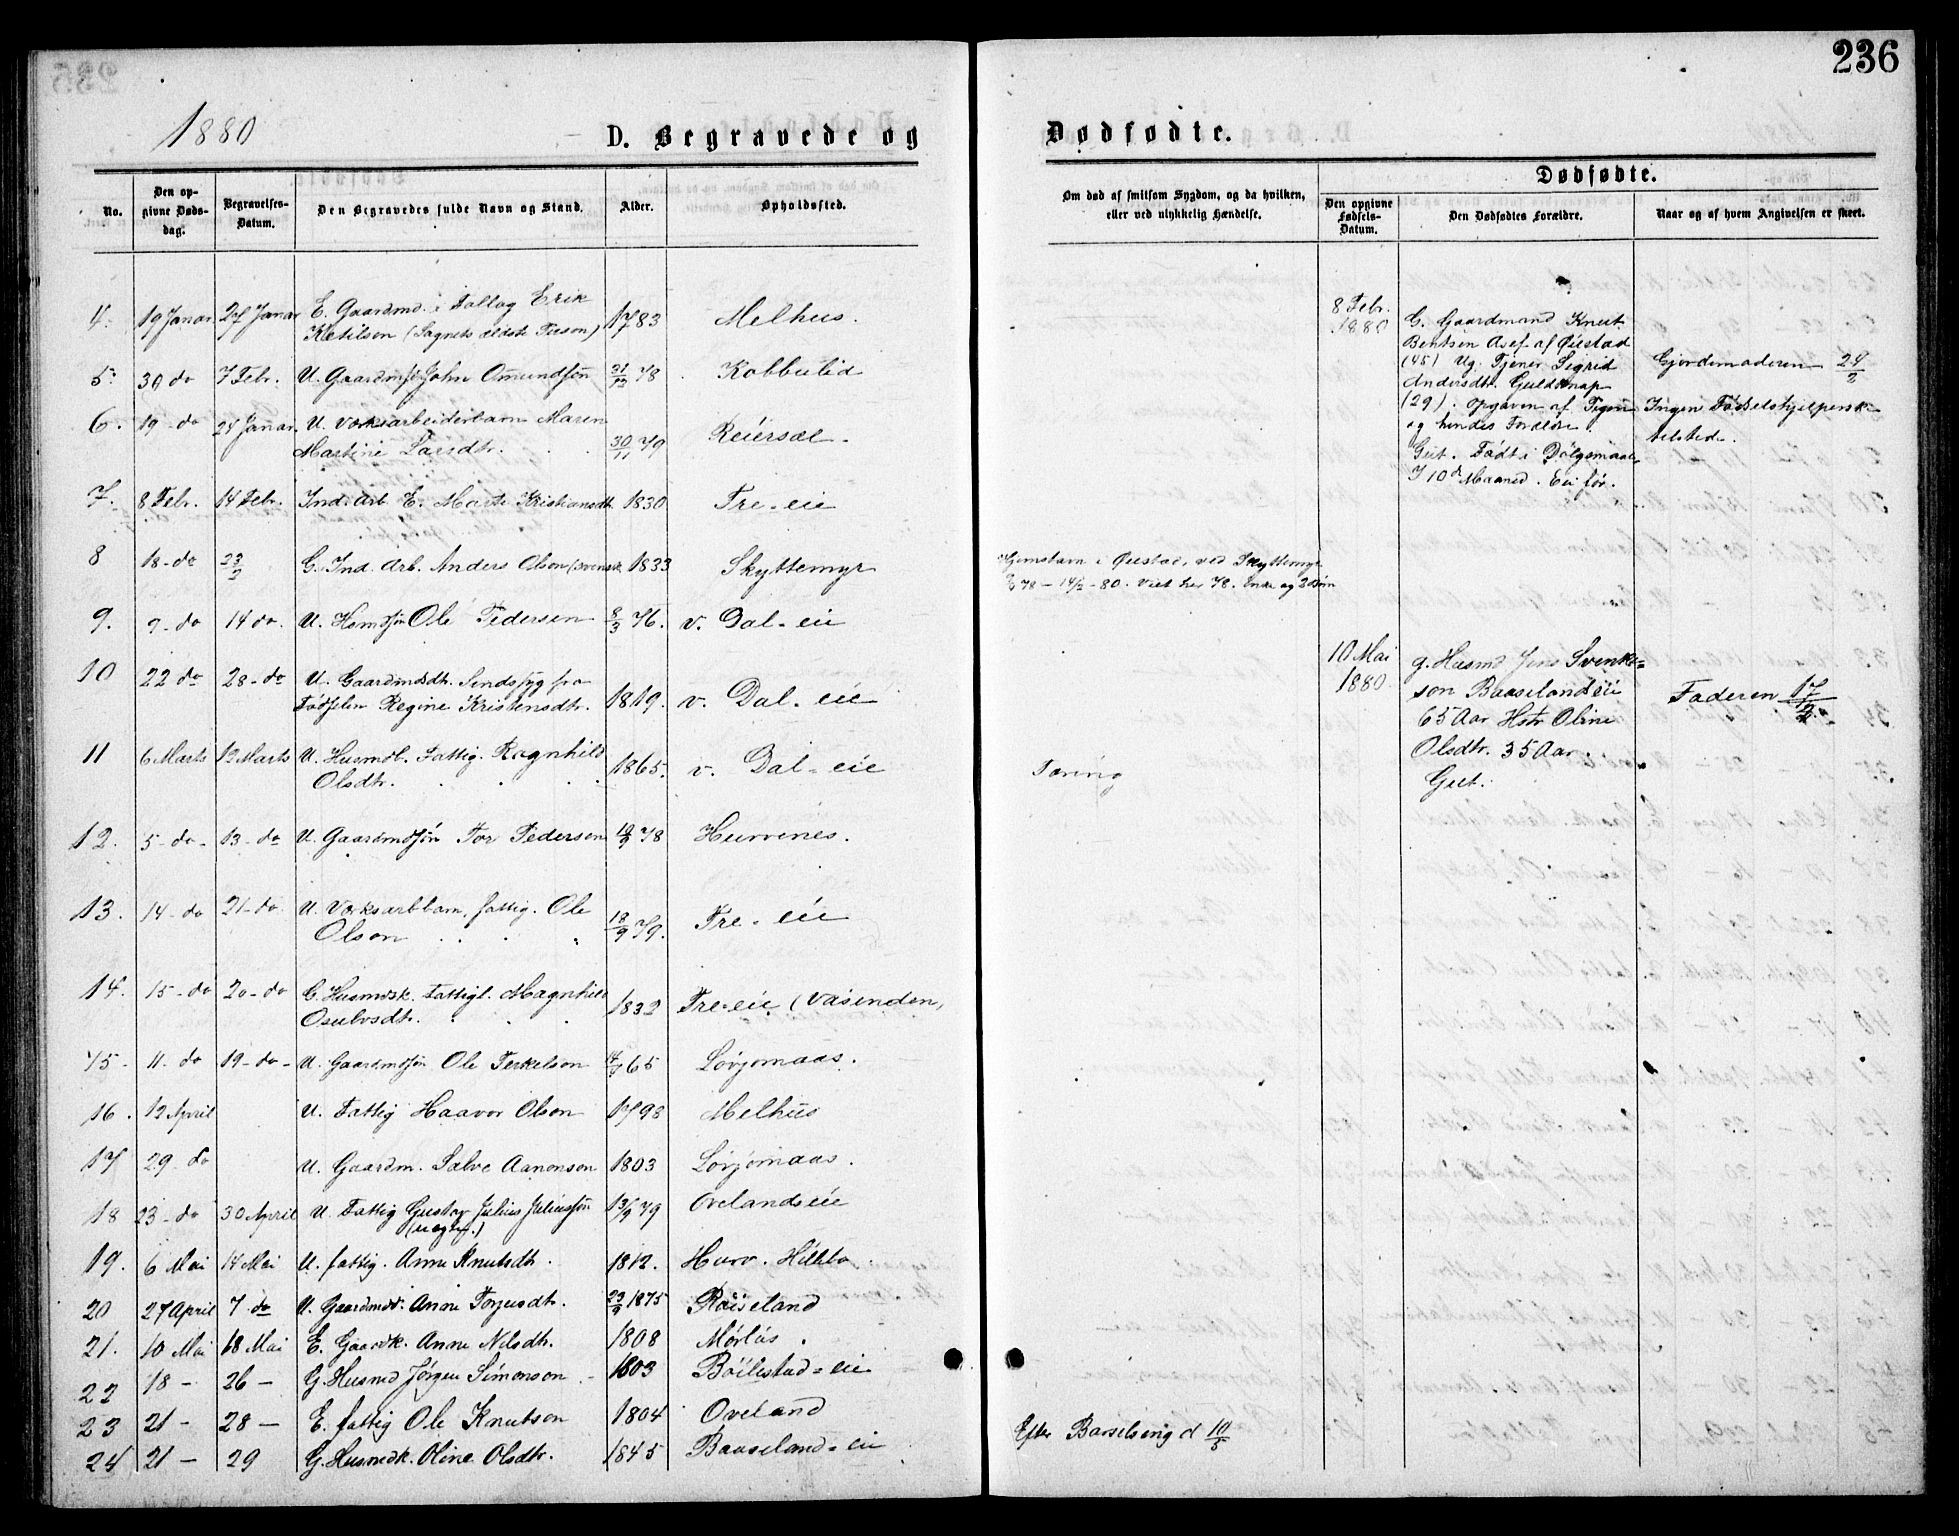 236
1880
D. Begravede og
Dødfødte.
No.
Den op-
givne Døds-
dag.
Begravelses-
Datum.
Den Begravedes fulde Navn og Stand.
Alder.
Opholdssted.
Om død af smitsom Sygdom, og da hvilken,
eller ved ulykkelig Hændelse.
Dødfødte.
Den opgivne
Fødsels-
Datum.
Den Dødfødtes Forældre.
Naar og af hvem Angivelsen er skeet.
4. 19 Januar 27 Januar E. Gaardmd. i Erik
Ketilson (Sognets ældste Person) 1783 Melhus.
5. 30 do 7 Febr. U. Gaardmds John Omundsøn 31/12 78 Kobbelid
6. 19 - do 24 Januar U. Værksarbeiderbarn Maren
Martine Larsdtr. 30/11 79 Reiersøl.
7. 8 Febr. 14 Febr. Ind. Arb. E. Marte Kristiansdtr 1830 Fre-eie
8 18 - do 23/2 G. Ind. Arb. Anders Olson (svensk 1833 Skyttemyr
9. 9 - do 14 do. U. Hsmdsøn Ole Pedersen 8/3 76. v. Dal-eie
10 22 do 28 - do U. Gaardmdsdtr. Sindssyg fra
Fødselen Regine Kristensdtr. 1819. v. Dal-eie
11 6 Marts 12 Marts U. Husmdb. Fattig. Ragnhild
Olsdtr. 1865. v. Dal-eie
12. 5 - do - 13 - do U. Gaardmdsøn Tor Pedersen 19/9 78 Hurvenes.
13. 14 - do 21 - do U. Værksarbbarn. fattig. Ole
Olson 18/9 79. Fre-eie
14. 15 - do 20 - do G. Husmdsk. Fattigl. Magnhild
Osulvsdtr. 1832 Fre-eie (Vasenden)
15 - 11 - do 19 - do - U. Gaardmdsøn Ole Terkelson 65 Løvjomaas.
16. 12 April U. Fattig Haavor Olson 1798 Melhus
17 29 - do U. Gaardm. Salve Aanonson 1803 Løvjomaas.
18 23 - do 30 April U. Fattig Gustav Julius Juliussøn
(uægte.) 13/9 79 Ovelandseie
19. 6 Mai 14 Mai U. fattig. Anne Knutsdtr. 1812. Hurv. Hillebo
20 27 April 7 do U. Gaardmdd. Anne Torjusdtr. 23/9 1875 Røiseland
21. 10 Mai 18 Mai E. Gaardk. Anne Nilsdtr. 1808 Mørlås.
22 18 - 26 - G. Husmd Jørgen Simonson - 1803 Bøilestad-eie
23 21 - 28 - E. fattig Ole Knutson 1804 Oveland
24 21 - 29 G. Husmdk. Oline Olsdtr. 1845 Baaseland-eie
8 Febr.
1880
G. Gaardmand Knut
Bentsen Asef af Øiestad
(45) Ug. Tjener Sigrid
Andersdtr. Guldsnap
(29). Opgaven af Pigen
og hendes Forældre.
Gut. Født i Dølgsmaal
I 10de Maaned. Ei før.
Gjordemoderen 24/2
Ingen Fødselshjelperske
tilsted.
Hjemstavn i Øiestad, ved Skyttemyr
78 - 14/2 - 80. Viet her 78. Enke og 2 Børn
10 Mai
1880.
g. Husmd Jens Svenke-
son Baaselandseie
65 Aar Hstr Oline
Olsdtr. 35 Aar.
Gut.
Faderen
Tæring
Efter Barselseng d 10/5